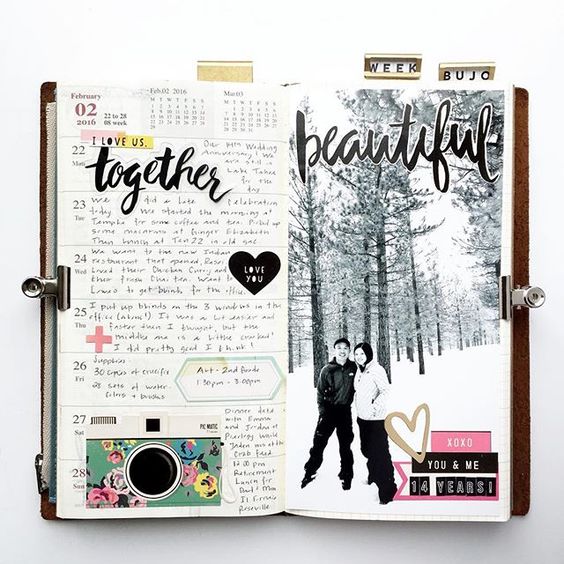 WEEK
BUJO
February
02
2016
22 to 28
08 week
Feb.02 2016
M T W T F S S
Mar.03
M T W T F S S
I LOVE US.
together
22
Mon
Our 14th Wedding
Anniversary! We
are still in
Lake Tahoe
for the
day
23
Tue
We did a late celebration
today. We started the morning at
Temple for some coffee and tea. Picked up
some macarons at Ginger Elizabeth
Then lunch at Ten22 in old sac
24
Wed
We went to the new Indian
restaurant that opened
Loved their Chicken Curry and
their fresh Chai tea. Went to
Lowe's to get blinds for the office
LOVE
YOU
25
Thu
I put up blinds on the 3 windows in the
office (alone!) It was a lot easier and
faster then I thought but the
middle one is a little crooked!
I did pretty good I think!
26
Fri
Supplies:
30 copies of crucifix
28 sets of water-
colors + brushes
Art - 2nd Grade
1:30pm - 3:00pm
27
28
Sun
PIC MATIC
Dinner date
with Emma
and Jordan at
while
Jaden was at the
Crab feed
12:00 pm
Retirement
Lunch for
Dad + Mom
Il Fornaio
Roseville
beautiful
XOXO
YOU & ME
14 YEARS!